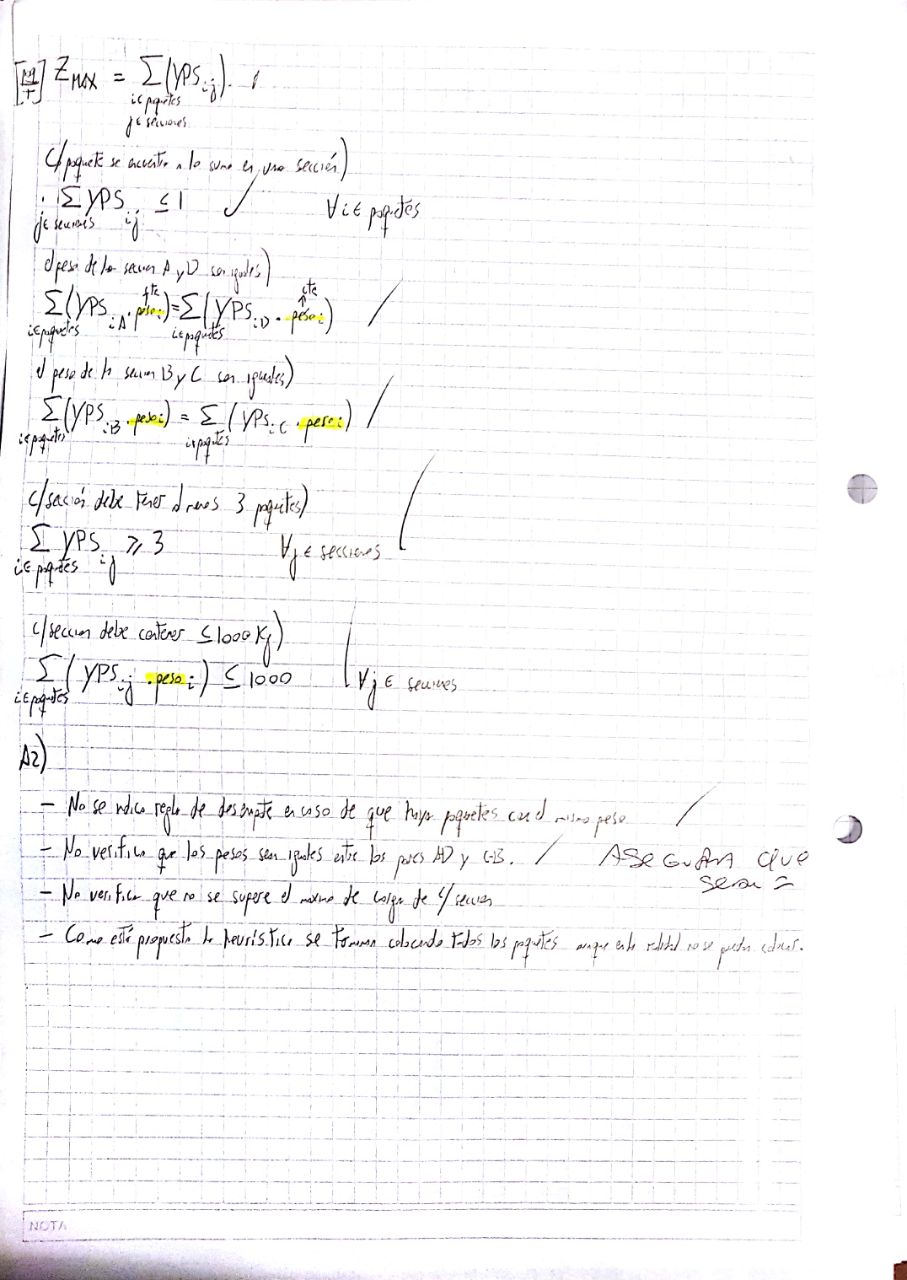 [M/T] Z MAX = Σ (YPS ij).
i ∈ paquetes
j ∈ secciones
c/paquete se encuentra a lo sumo en una sección)
Σ YPS ij ≤ 1 ∀ i ∈ paquetes
j ∈ secciones
el peso de la seccion A y D son iguales)
cte cte
Σ (YPS iA · peso i) = Σ (YPS iD · peso i)
i ∈ paquetes i ∈ paquetes
el peso de la seccion B y C son iguales)
Σ (YPS iB · peso i) = Σ (YPS iC · peso i)
i ∈ paquetes i ∈ paquetes
c/sección debe tener al menos 3 paquetes)
Σ YPS ij ≥ 3 ∀ j ∈ secciones
i ∈ paquetes
c/seccion debe contener ≤ 1000 Kg)
Σ (YPS ij · peso i) ≤ 1000 ∀ j ∈ secciones
i ∈ paquetes
A2)
- No se indica regla de desempate en caso de que haya paquetes con el mismo peso
- No verifica que los pesos sean iguales entre los pares AD y C-B. ASEGURAR QUE
sean =
- No verifica que no se supere el maximo de carga de c/ seccion
- Como está propuesta la heurística se termina colocando todos los paquetes aunque en la realidad no se puedan colocar.
NOTA